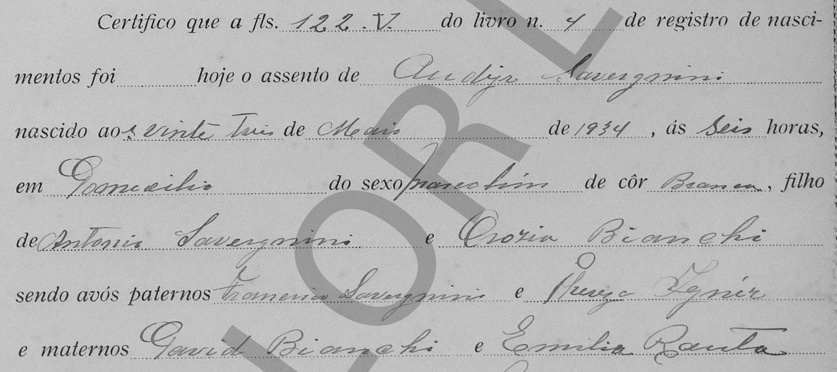 Certifico que a fls. 122.V. do livro n. 4 de registro de nasci-
mentos foi hoje o assento de Audyr Savergnini
nascido aos vinte tres de Maio de 1934, ás Seis horas,
em Domicilio do sexo masculino de côr Branca, filho
de Antonio Savergnini e Orozia Bianchi
sendo avós paternos Francisco Savergnini e Thereza
e maternos David Bianchi e Emilia